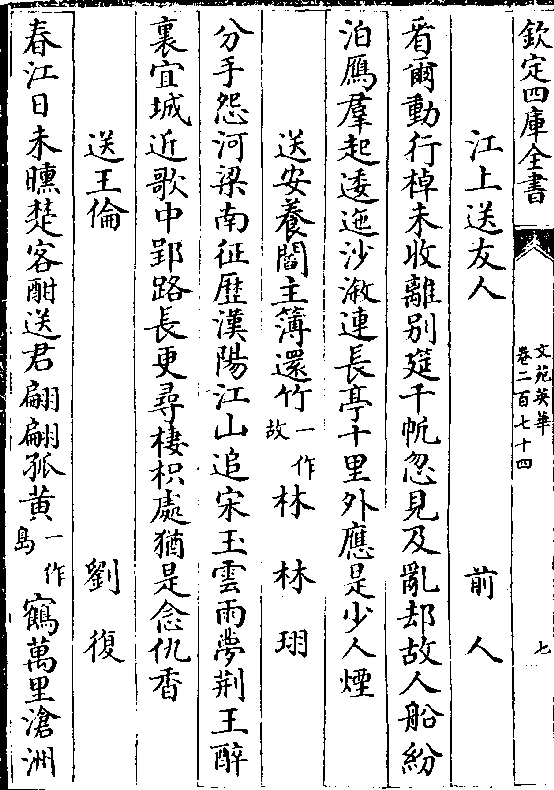 欽定四庫全書 文苑英華 卷二百七十四 七
江上送友人 前人
看爾動行棹未收離别筵千帆忽見及亂却故人船紛
泊鴈羣起逶迤沙溆連長亭十里外應是少人煙
送安養閻主簿還竹一作故林 林珝
分手怨河梁南征歴漢陽江山追宋玉雲雨夢荆王醉
裏宜城近歌中郢路長更尋棲枳處猶是念仇香
送王倫 劉復
春江日未曛楚客酣送君翩翩孤黄一作島鶴萬里滄洲